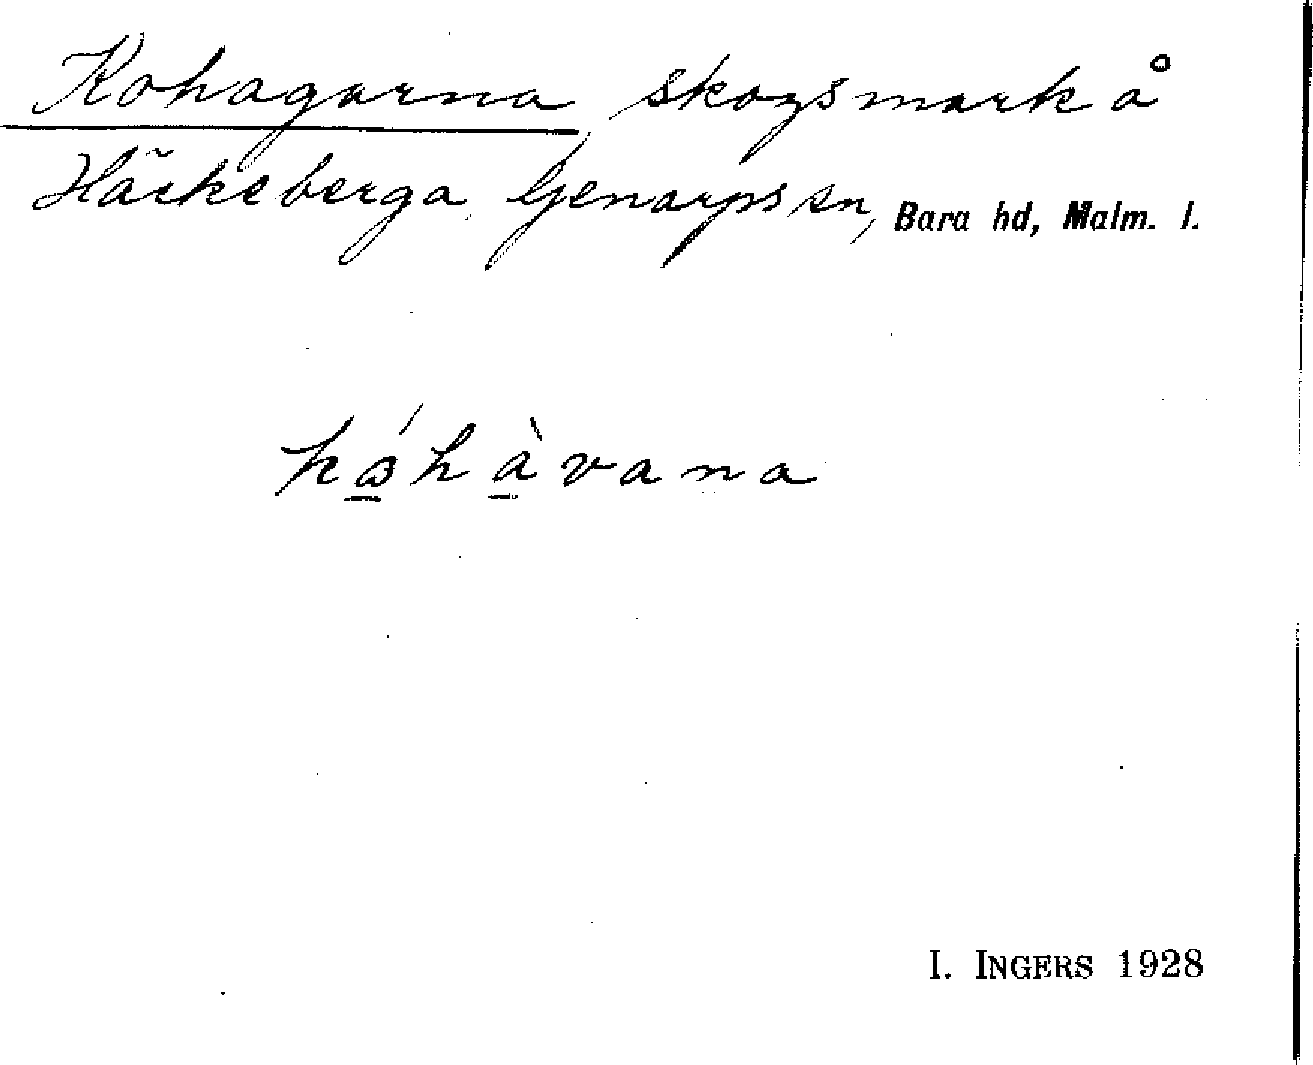 Kohagarna, skogsmark å
Häckeberga, Genarps sn, Bara hd, Malm. l.
kǿhàvana
I. INGERS 1928